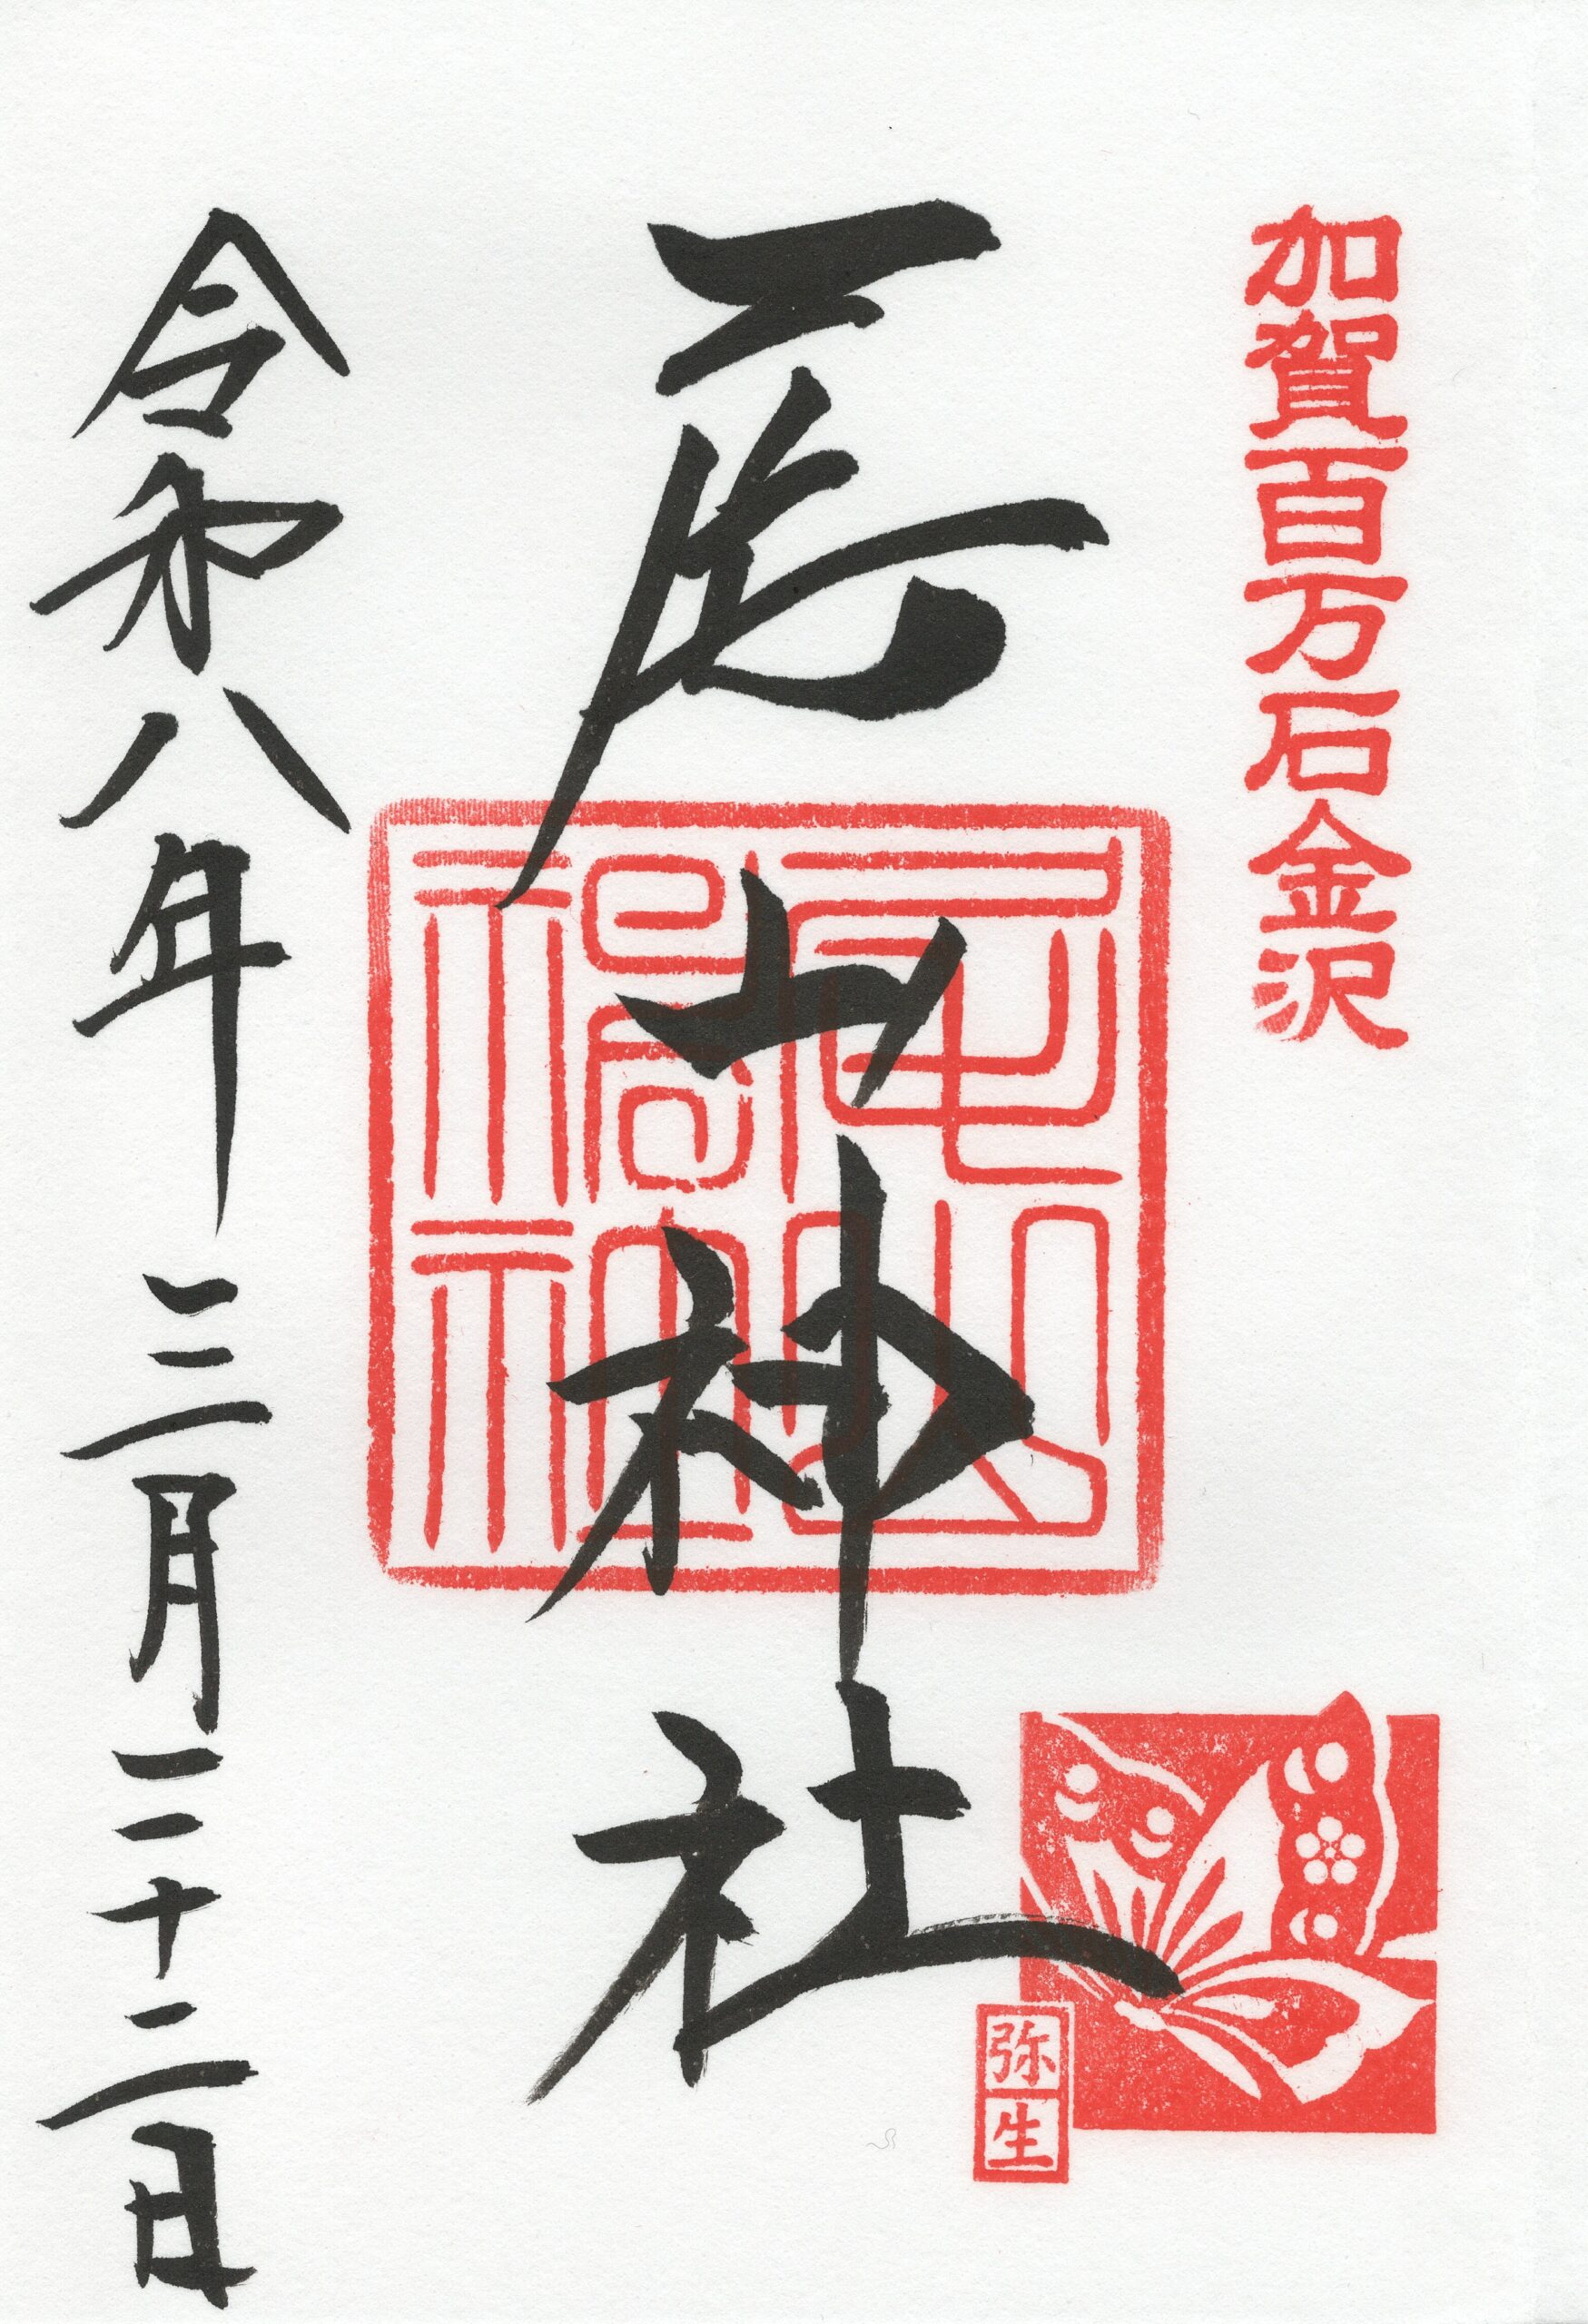 加賀百万石金沢
尾山神社
尾山神社
弥生
令和八年三月二十二日